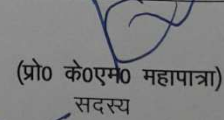 (प्रो0 के0एम0 महापात्रा)
सदस्य